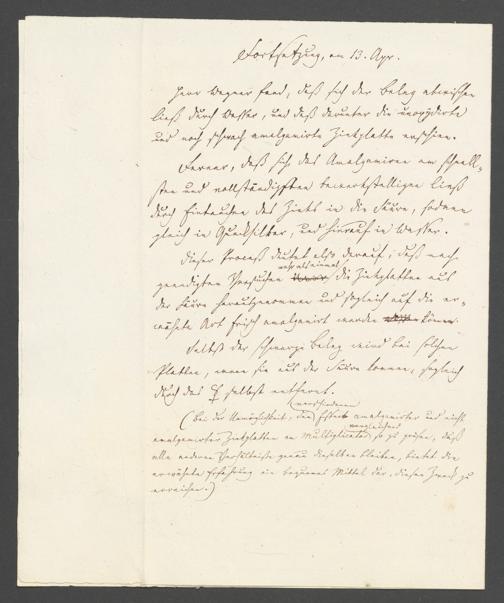 Fortsetzung, am 13. Apr.
Herr Wagner fand, daß sich der Beleg abwischen
ließ durch Wasser, und daß darunter die unoxydirte
und noch schwach amalgamirte Zinkplatte erschien.
Ferner, daß sich das Amalgamiren am schnell-
sten und vollständigsten bewerkstelligen ließ
durch Eintauchen des Zinks in die Säure, sodann
gleich in Quecksilber, und hierauf in Wasser.
Dieser Proceß deutet also darauf, daß nach
geendigten Versuchen die Zinkplatten aus
der Säure herauszunehmen und sogleich auf die er-
wähnte Art frisch amalgamirt werden können.
Selbst der schwarze Beleg wird bei solchen
Platten, wenn sie aus der Säure kommen, sogleich
durch das selbst entfernt.
verschiedenen
(bei der Unmöglichkeit, den Effekt amalgamirter und nicht
vergleichend
amalgamirter Zinkplatten am Multiplicator so zu prüfen, daß
alle anderen Verhältnisse genau dieselben bleiben, bietet die
erwähnte Erfahrung ein bequemes Mittel dar, diesen Zweck zu
erreichen.)